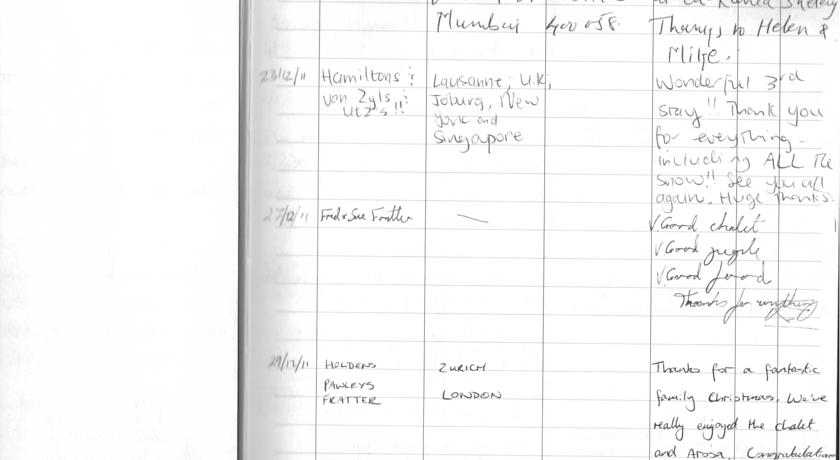 Mumbai 400 058. Thanks to Helen &
Mike.
23/12/11 Hamiltons; Lausanne, U.K, Wonderful 3rd
von Zyls; Joburg, New stay!! Thank you
Utz's!! York and for everything
Singapore including ALL the
snow!! See you all
again. Huge thanks.
27/12/11 Fred & Sue Fratter — V. Good chalet
V Good people
V Good food
Thanks for everything
29/12/11 HOLDENS ZURICH Thanks for a fantastic
PAWLEYS
FRATTER LONDON family Christmas. We've
really enjoyed the chalet
and Arosa.